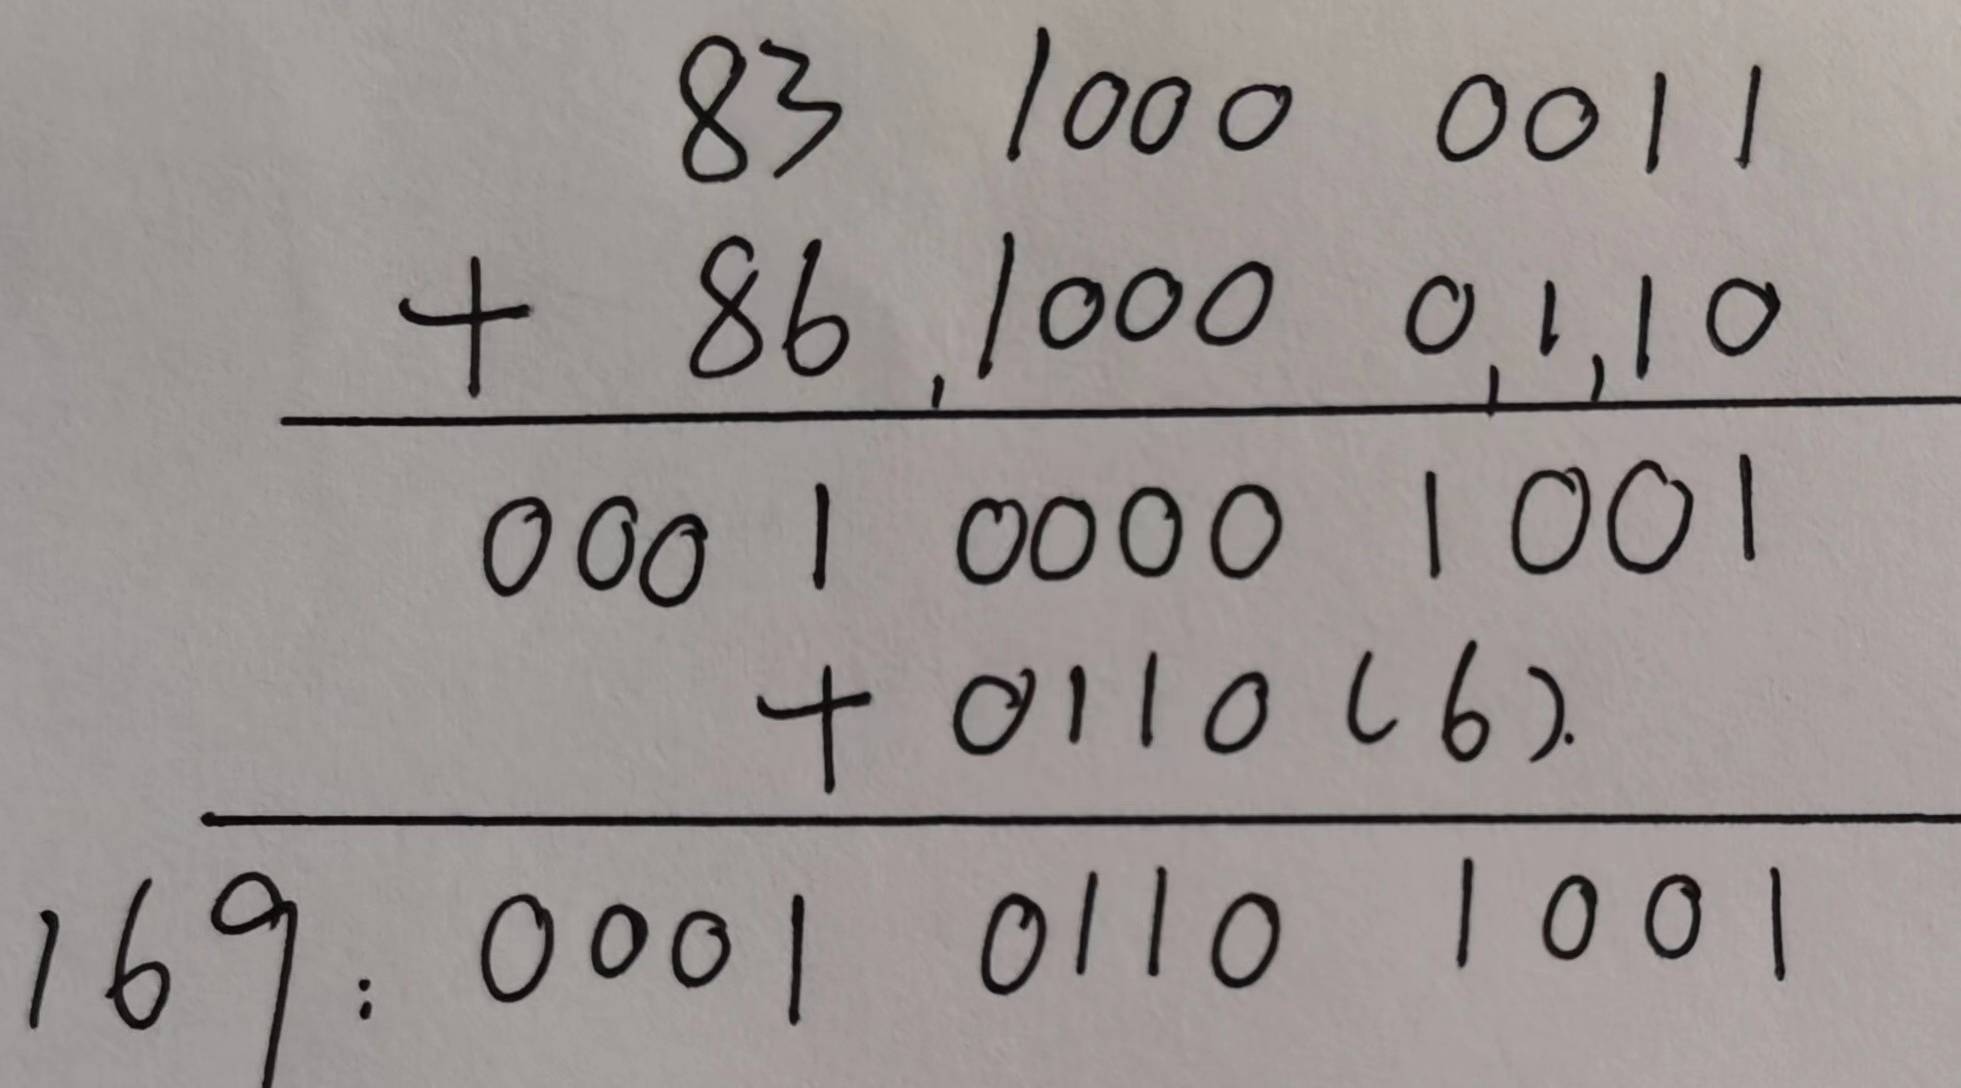 83 1000 0011
+ 86 1000 0110
0001 0000 1001
+ 0110 (6).
169: 0001 0110 1001